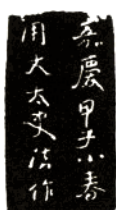 嘉慶甲子小春
用大太史法作